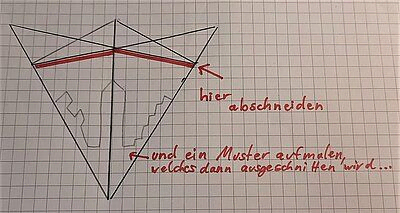 hier
abschneiden
und ein Muster aufmalen,
welches dann ausgeschnitten wird...